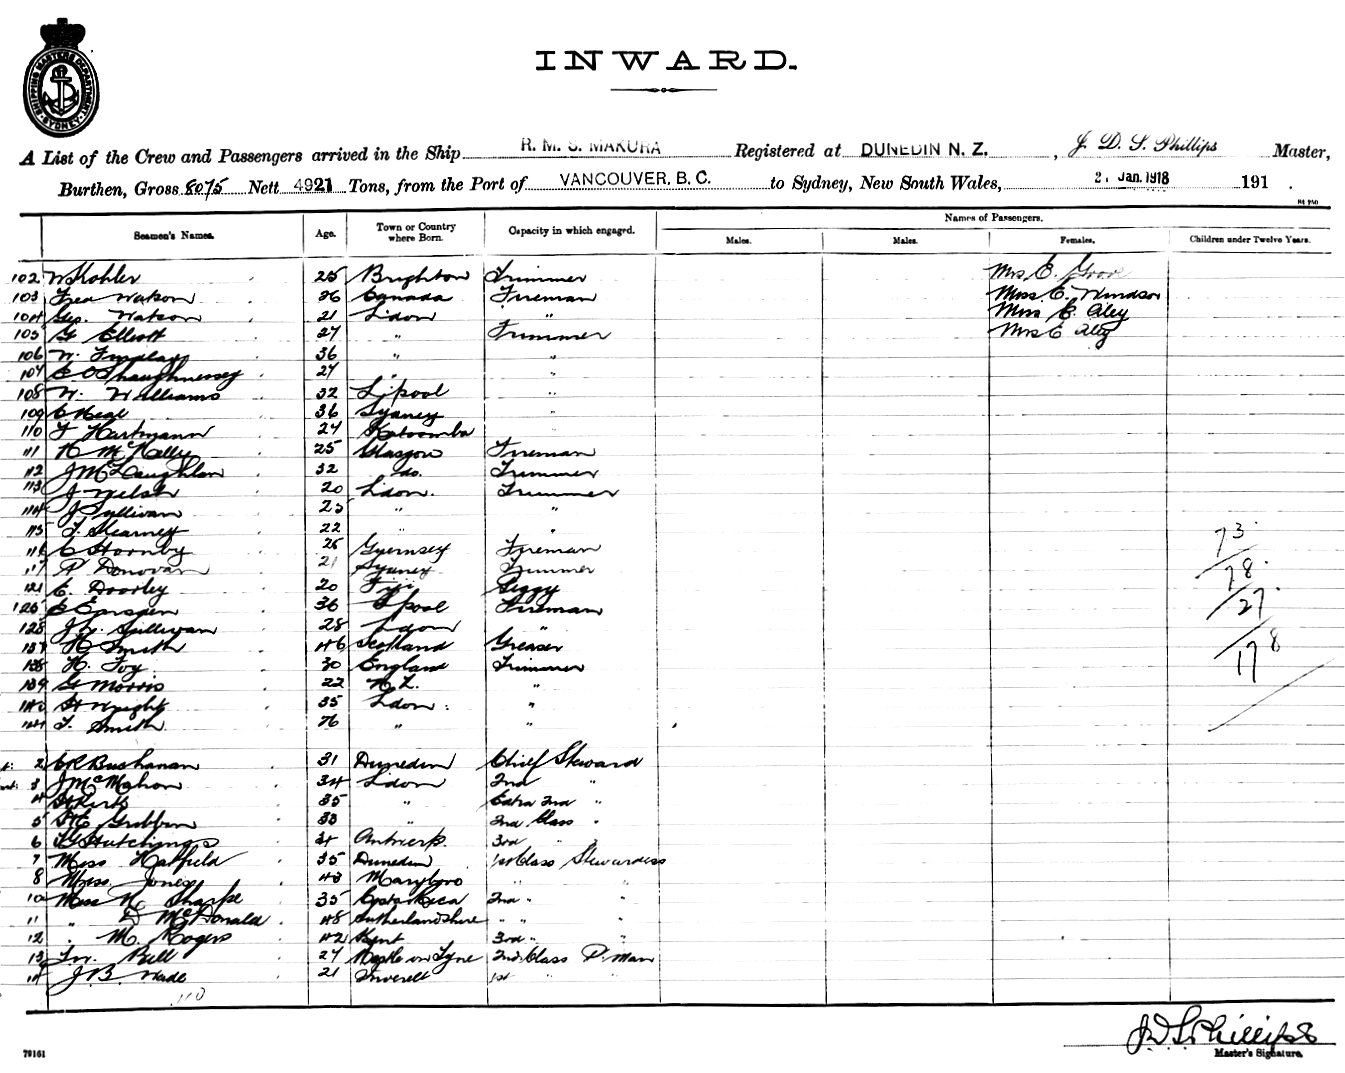 SHIPPING MASTERS DEPARTMENT SYDNEY
INWARD.
A List of the Crew and Passengers arrived in the Ship R. M. S. MAKURA Registered at DUNEDIN N. Z. , J. D. S. Phillips Master,
Burthen, Gross 8075 Nett 4921 Tons, from the Port of VANCOUVER, B. C. to Sydney, New South Wales, 2 Jan. 1918 191 .
Seamen's Names. Age. Town or Country where Born. Capacity in which engaged. Names of Passengers.
Males. Males. Females. Children under Twelve Years.
102 W Kohler 25 Brighton Trimmer Mrs E. Grove
103 Fred Watson 26 Canada Fireman Miss E. Windsor
104 Geo. Watson 21 Ldon " Miss E. Aley
105 G Elliott 27 " Trimmer Mrs E Aley
106 W. Finplay 36 " "
107 E O'Shaughnessey 27 "
108 W. Williams 32 L'pool "
109 C Neal 36 Sydney
110 F Hartmann 24 Katoomba
111 H McNally 25 Glasgow Fireman
112 J McLaughlan 32 do. Trimmer
113 J Welsh 20 Ldon. Trimmer
114 J Sullivan 25 " "
115 T. Kearney 22 " "
116 C Hornby 25 Guernsey Fireman
117 P Donovan 21 Sydney Trimmer
121 E. Doorley 20 Fiji Peggy
125 36 L'pool Fireman
128 Sullivan 28 Ldon "
137 H Smith 46 Scotland Greaser
138 H. Foy 30 England Trimmer
139 G Morris 22 N.Z. "
140 H Wright 35 Ldon. "
T. Smith 26 " "
73
78
27
178
2 C R Buchanan 31 Dunedin Chief Steward
3 J McMahon 34 Ldon 2nd "
4 H Kirk 35 " Extra 2nd "
5 H E Gribben 33 " 2nd Class "
6 Hutchings Antwerp. 3rd "
7 Miss Hatfield 35 Dunedin 1st Class Stewardess
8 Miss Jones 43 Maryboro " "
10 Miss N. Sharpe 35 Costa Rica 2nd " "
11 " D McDonald 48 Sutherlandshire " " "
12 " M. Rogers 42 Kent 3rd " "
13 Bell 27 Ncstle on Tyne 2nd Class P. Man
14 J. B. Wade 21 Inverell 1st " "
110
J. D. S. Phillips
Master's Signature.
79161